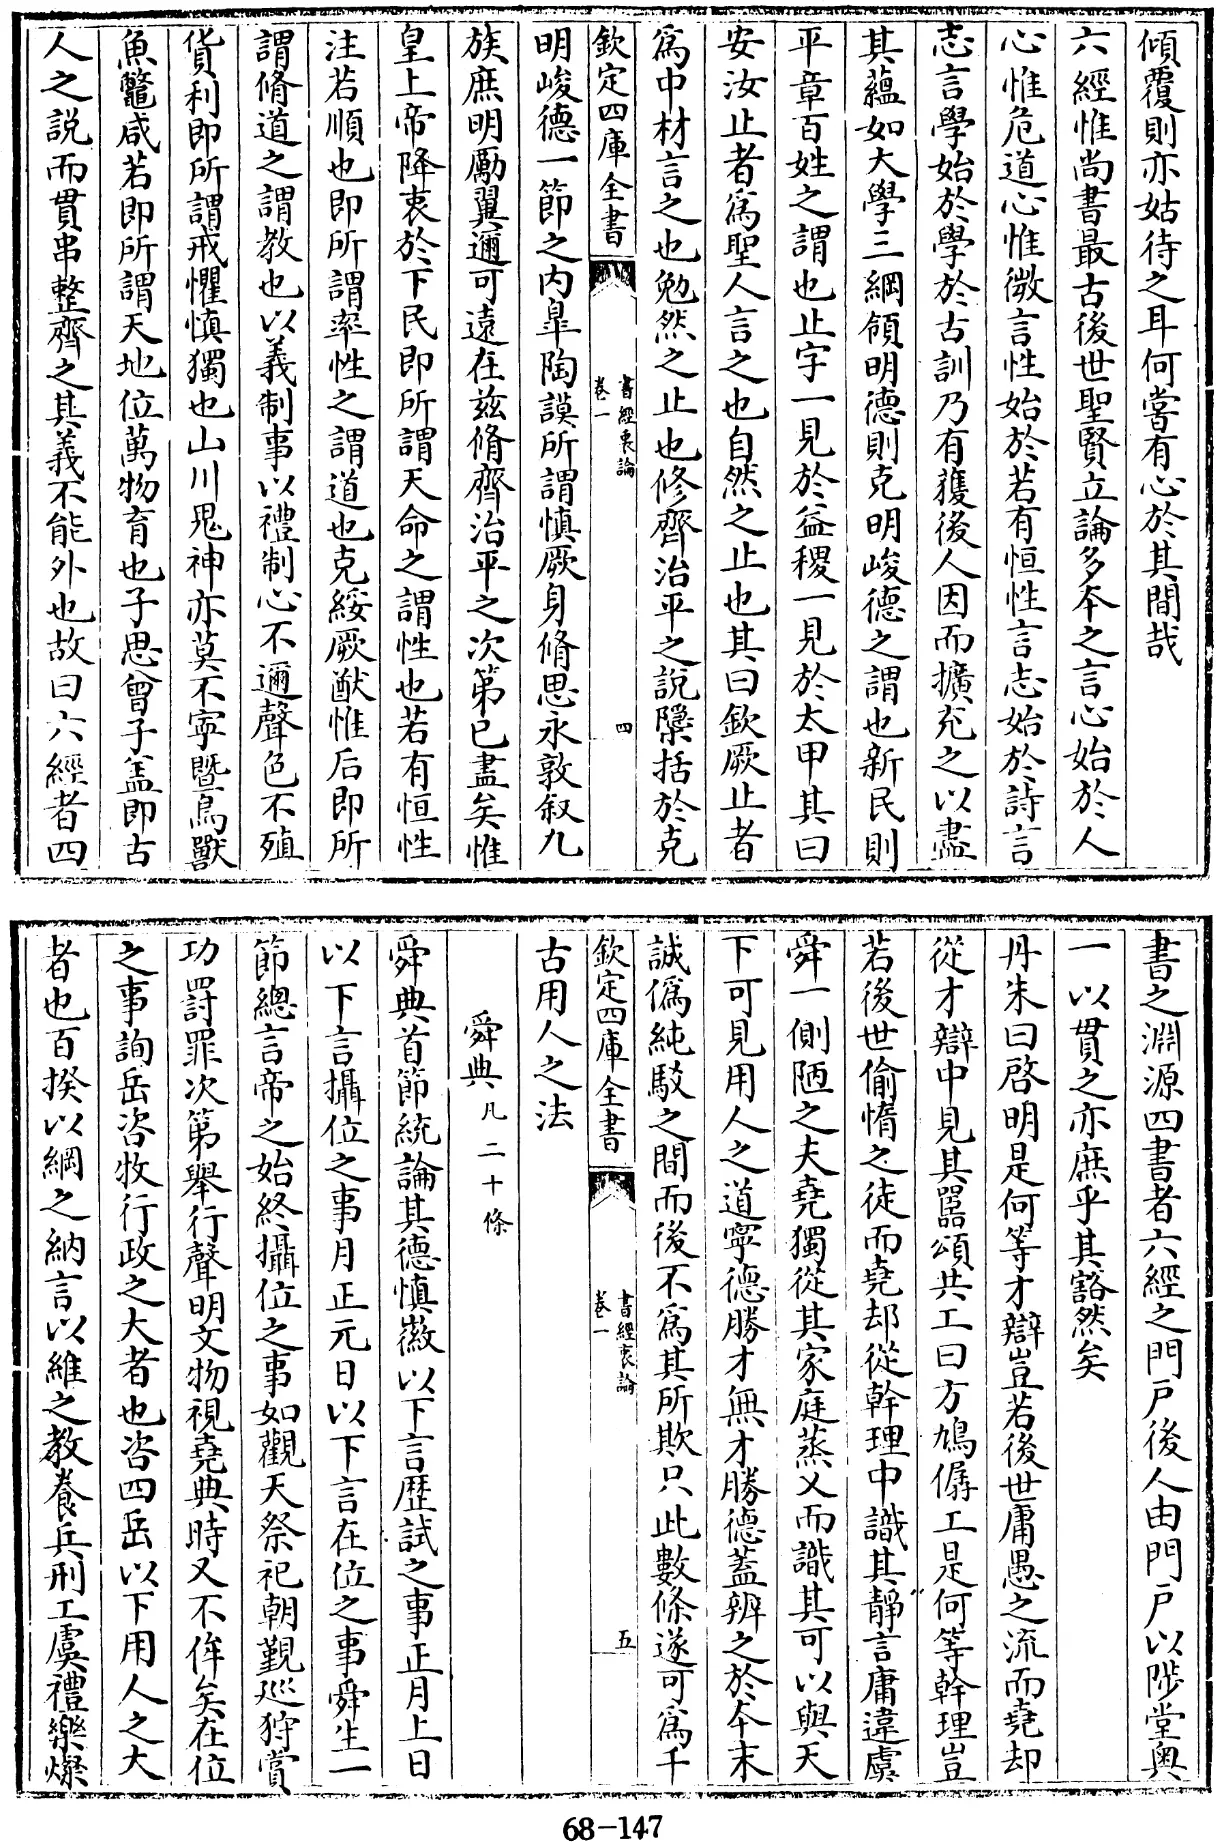 傾覆則亦姑待之耳何嘗有心於其間哉
六經惟尚書最古後世聖賢立論多本之言心始於人
心惟危道心惟微言性始於若有恒性言志始於詩言
志言學始於學於古訓乃有獲後人因而擴充之以盡
其蘊如大學三綱領明德則克明峻德之謂也新民則
平章百姓之謂也止字一見於益稷一見於太甲其曰
安汝止者為聖人言之也自然之止也其曰欽厥止者
為中材言之也勉然之止也修齊治平之說隱括於克
欽定四庫全書
書經衷論
卷一
四
明峻德一節之內皐陶謨所謂慎厥身脩思永敦敘九
族庶明勵翼邇可遠在茲脩齊治平之次第已盡矣惟
皇上帝降衷於下民即所謂天命之謂性也若有恒性
注若順也即所謂率性之謂道也克綏厥猷惟后即所
謂脩道之謂教也以義制事以禮制心不邇聲色不殖
貨利即所謂戒懼慎獨也山川鬼神亦莫不寧暨鳥獸
魚鼈咸若即所謂天地位萬物育也子思曾子盖即古
人之說而貫串整齊之其義不能外也故曰六經者四
書之淵源四書者六經之門戶後人由門戶以陟堂奧
一以貫之亦庶乎其豁然矣
丹朱曰啓明是何等才辯豈若後世庸愚之流而堯却
從才辯中見其嚚頌共工曰方鳩僝工是何等幹理豈
若後世偷惰之徒而堯却從幹理中識其靜言庸違虞
舜一側陋之夫堯獨從其家庭蒸乂而識其可以與天
下可見用人之道寧德勝才無才勝德蓋辨之於本末
誠僞純駁之間而後不為其所欺只此數條遂可為千
欽定四庫全書
書經衷論
卷一
五
古用人之法
舜典凡二十條
舜典首節統論其德慎徽以下言歷試之事正月上日
以下言攝位之事月正元日以下言在位之事舜生一
節總言帝之始終攝位之事如觀天祭祀朝覲巡狩賞
功罰罪次第舉行聲明文物視堯典時又不侔矣在位
之事詢岳咨牧行政之大者也咨四岳以下用人之大
者也百揆以綱之納言以維之教養兵刑工虞禮樂燦
68-147